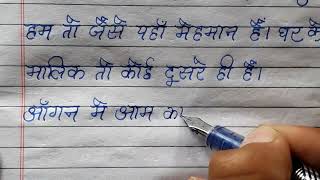 हम तो जैसे यहाँ मेहमान हैं। घर के
मालिक तो कोई दूसरे ही हैं।
आँगन मे आम का